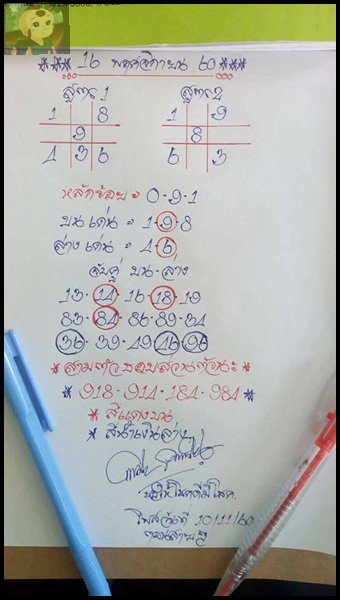 *** 16 พฤศจิกายน 60 ***
สูตร 1 สูตร 2
1 8 1 9
9 8
4 3 6 6 3
หลักร้อย = 0-9-1
บนเด่น = 1-9-8
ล่างเด่น = 4-6
จับคู่ บน-ล่าง
13-14-16-18-19
83-84-86-89-34
36-39-49-46-96
* สามตัว ชอบส่วนตัวนะ *
* 918-914-184-984 *
* สีแดงบน
* สีน้ำเงินล่าง
ขอให้โชคดีมีโชค
โพสวันที่ 10/11/60